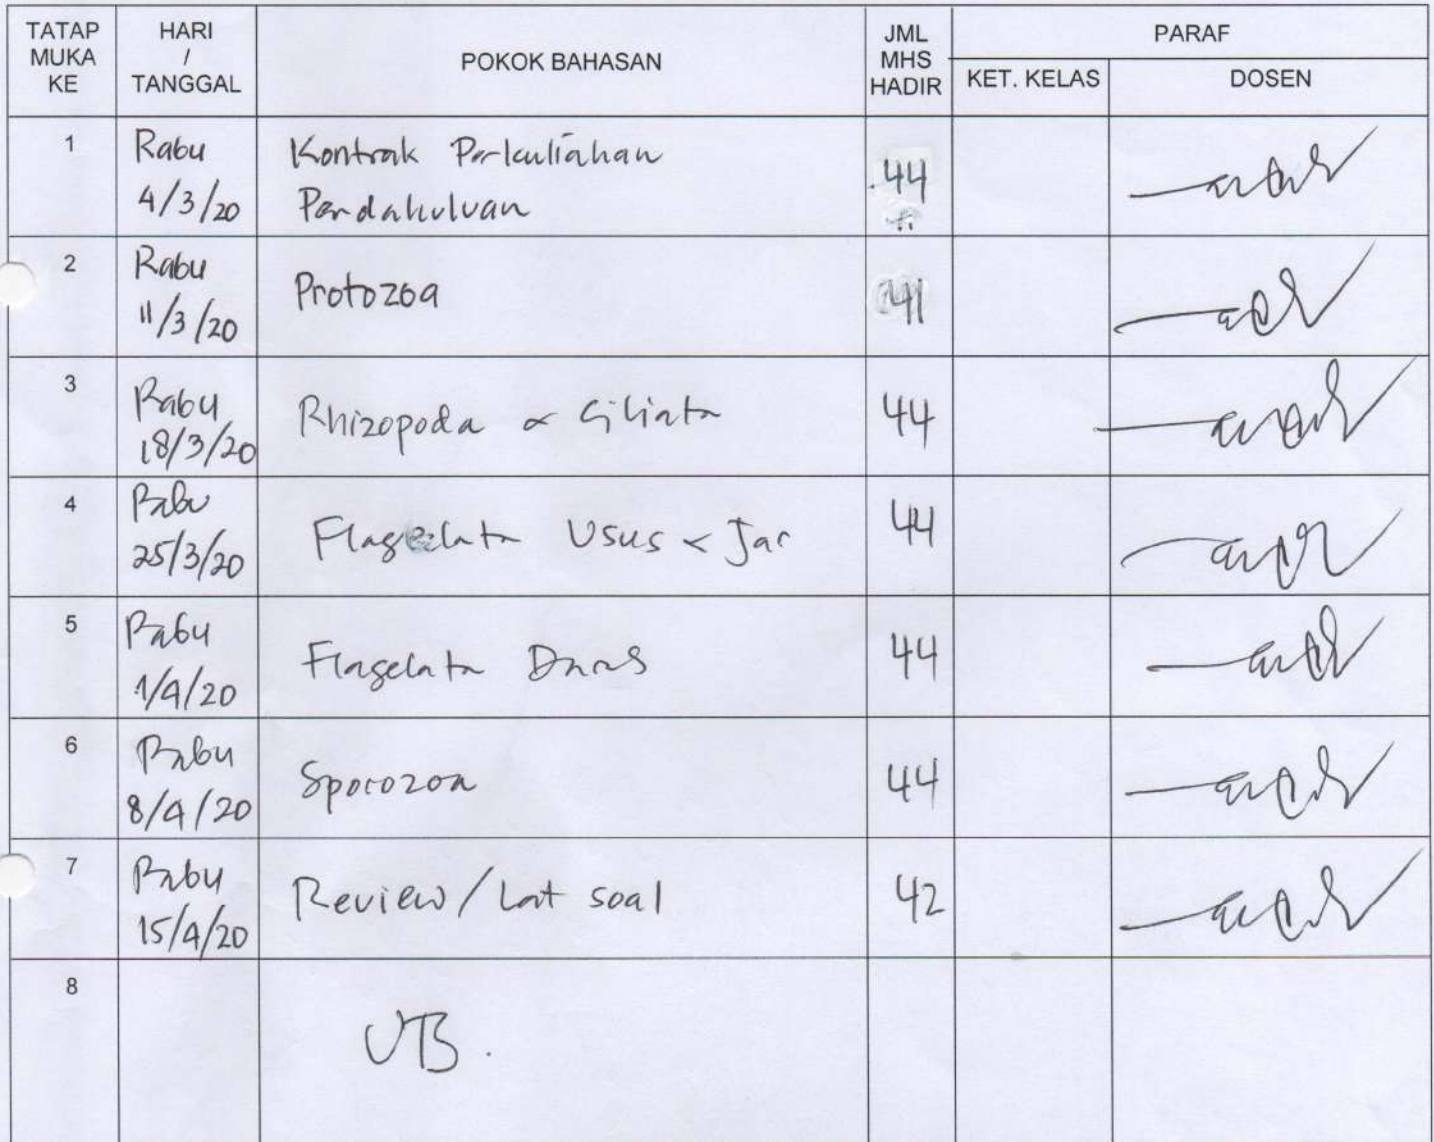 TATAP MUKA KE
HARI / TANGGAL
POKOK BAHASAN
JML MHS HADIR
PARAF
KET. KELAS
DOSEN
1
Rabu
4/3/20
Kontrak Perkuliahan
Pendahuluan
44
2
Rabu
11/3/20
Protozoa
41
3
Rabu
18/3/20
Rhizopoda & Ciliata
44
4
Rabu
25/3/20
Flagelata Usus & Jar
44
5
Rabu
1/4/20
Flagelata Darah
44
6
Rabu
8/4/20
Sporozoa
44
7
Rabu
15/4/20
Review/Lat soal
42
8
UTS.